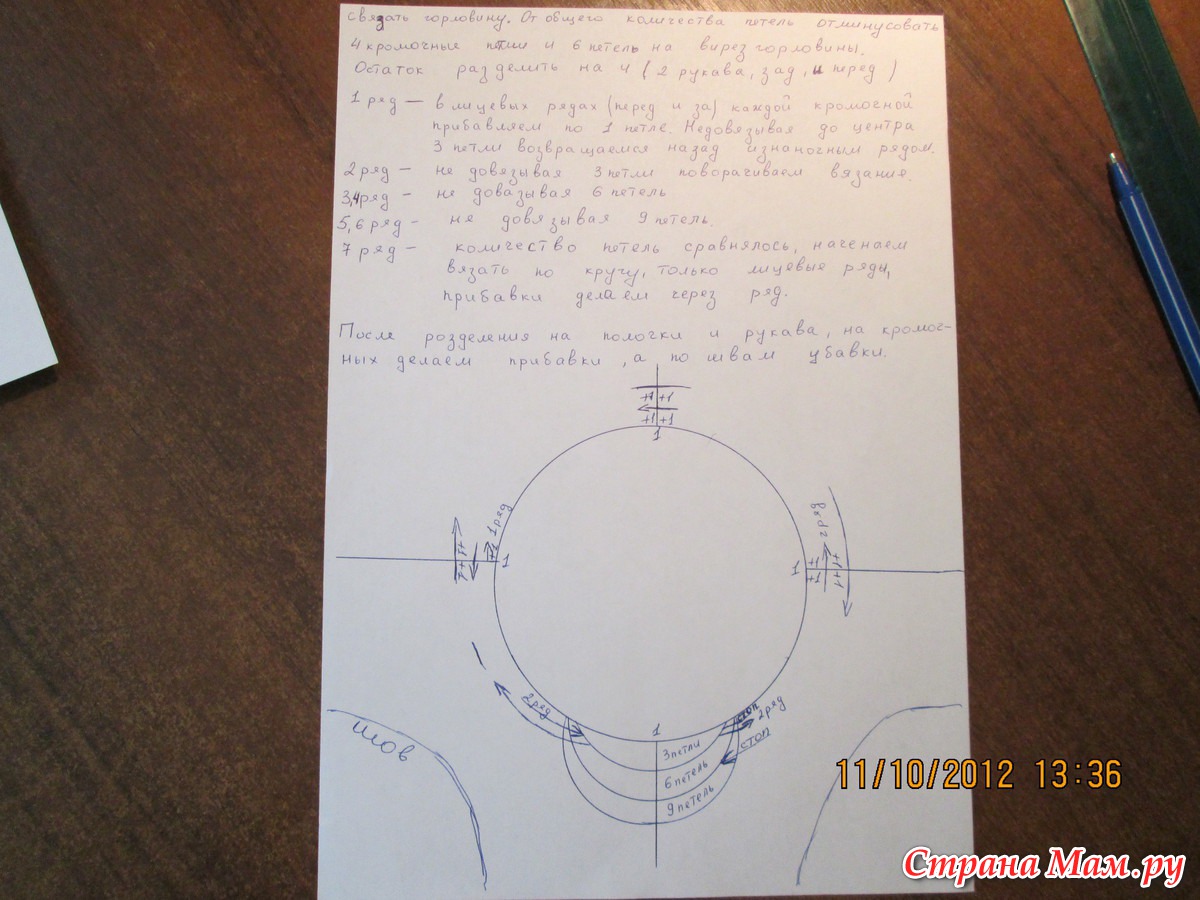 связать горловину. От общего количества петель отминусовать
4 кромочные петли и 6 петель на вирез горловины.
Остаток разделить на 4 ( 2 рукава, зад, и перед )
1 ряд — в лицевых рядах (перед и за) каждой кромочной
прибавляем по 1 петле. Недовязывая до центра
3 петли возвращаемся назад изнаночным рядом.
2 ряд — не довязывая 3 петли поворачиваем вязание.
3,4 ряд — не довазывая 6 петель
5,6 ряд - ня довязывая 9 петель.
7 ряд — количество петель сравнялось, наченаем
вязать по кругу, только лицевые ряды,
прибавки делаем через ряд.
После розделения на полочки и рукава, на кромоч-
ных делаем прибавки, а по швам убавки.
+1 +1
+1 +1
1
1 ряд
+1
+1 +1
1
2 ряд
1
+1
+1
+1 +1
2 ряд
1
стоп
2 ряд
стоп
3 петли
6 петель
9 петель
шов
11/10/2012 13:36
Страна Мам.ру